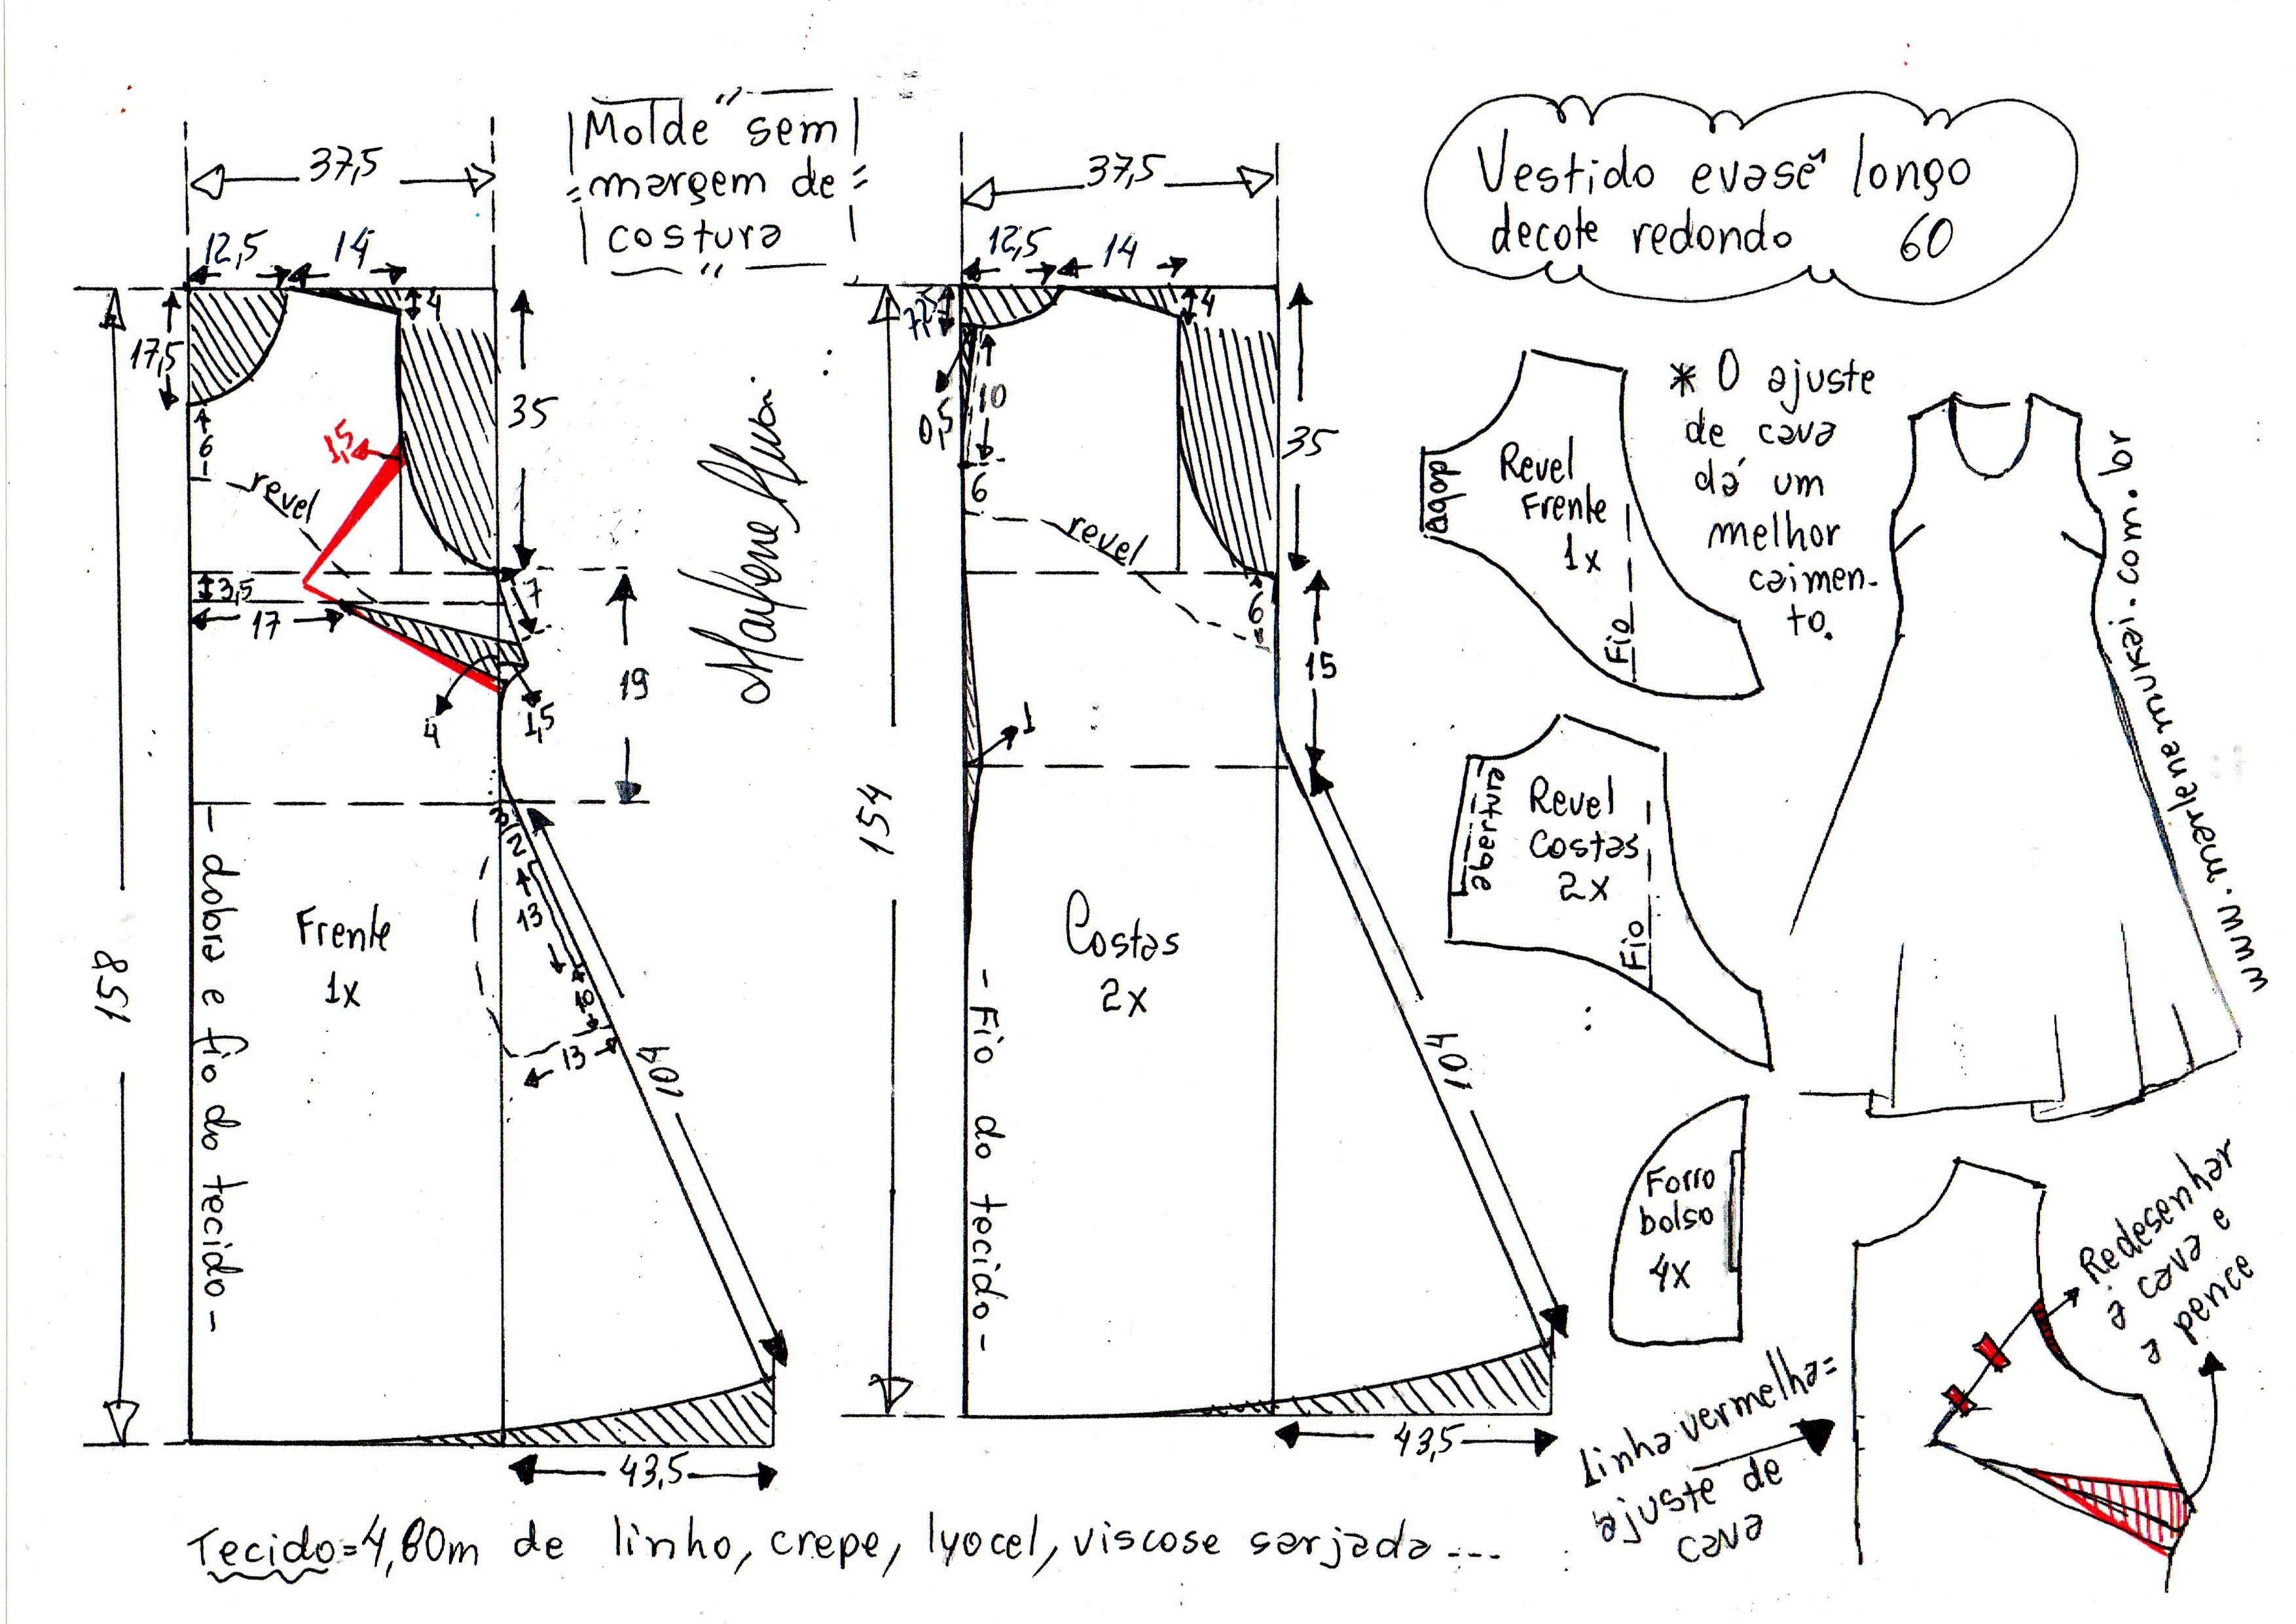 "Molde sem
margem de
costura"
Vestido evasê longo
decote redondo 60
37,5
12,5
14
4
17,5
6
35
1,5
revel
3,5
17
7
4
1,5
19
158
- dobra e fio do tecido -
Frente
1x
3
2
13
10
13
104
43,5
Marlene Mukai
37,5
12,5
14
4
0,5
10
6
35
revel
6
15
1
154
Costas
2x
- Fio do tecido -
104
43,5
dobra
Revel
Frente
1x
Fio
* O ajuste
de cava
dá um
melhor
caimen-
to.
abertura
Revel
Costas
2x
Fio
www.marlenemukai.com.br
Forro
bolso
4x
Linha vermelha=
ajuste de
cava
Redesenhar
a cava e
a pence
Tecido=4,80m de linho, crepe, lyocel, viscose sarjada...